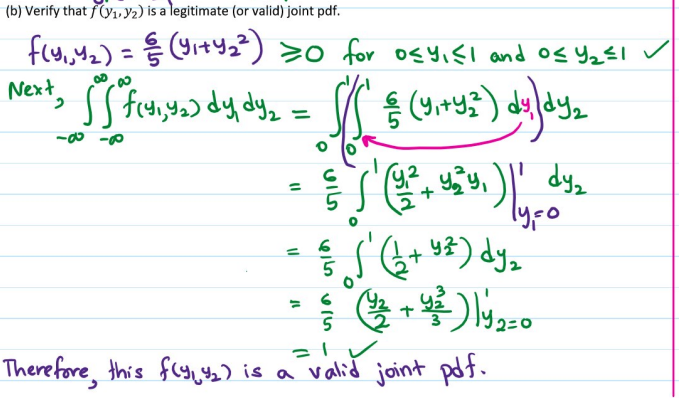 (b) Verify that f(y₁, y₂) is a legitimate (or valid) joint pdf.
f(y₁,y₂) = 6/5 (y₁+y₂²) ⩾0 for 0≤y₁≤1 and 0≤y₂≤1 ✓
Next, ∫_{-∞}^{∞} ∫_{-∞}^{∞} f(y₁,y₂) dy₁ dy₂ = ∫_0^1 (∫_0^1 6/5 (y₁+y₂²) dy₁) dy₂
= 6/5 ∫_0^1 (y₁²/2 + y₂²y₁)|_{y₁=0}^1 dy₂
= 6/5 ∫_0^1 (1/2 + y₂²) dy₂
= 6/5 (y₂/2 + y₂³/3)|_{y₂=0}^1
= 1 ✓
Therefore, this f(y₁,y₂) is a valid joint pdf.